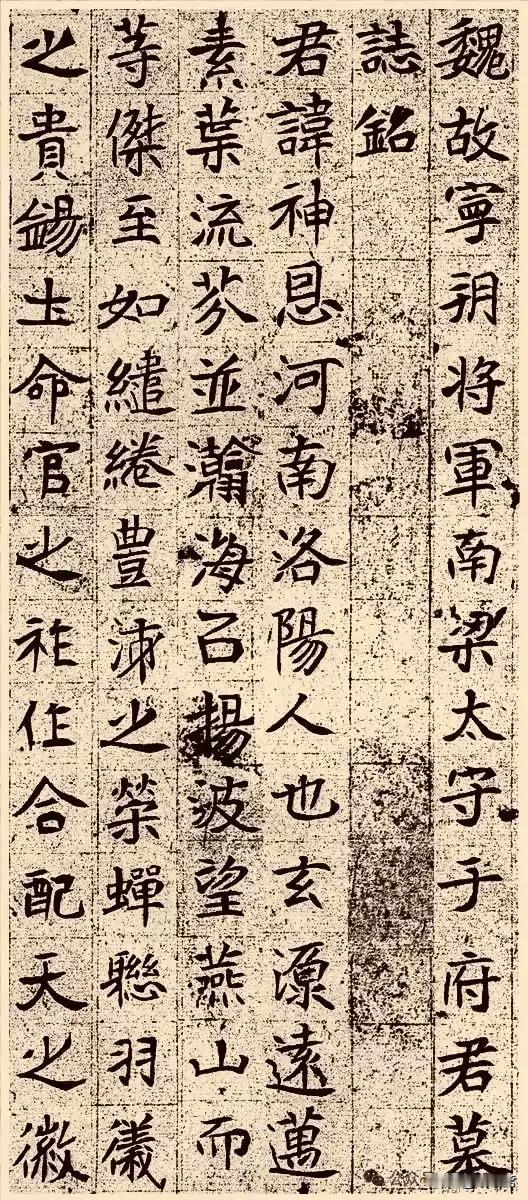 魏故寧朔将軍南梁太守于府君墓
誌銘
君諱神恩河南洛陽人也玄源遠邁
素葉流芬並瀚海以揚波望燕山而
等傑至如繾綣豊沛之榮蟬聯羽儀
之貴錫土命官之祚作合配天之徽